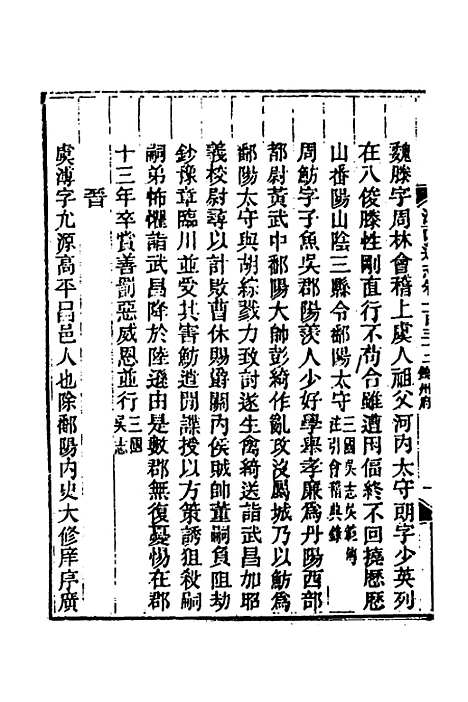 魏滕字周林會稽上虞人祖父河内太守朗字少英列
在八俊滕性剛直行不苟合雖遭困偪終不回撓歷歷
山番陽山陰三縣令鄱陽太守三國吳志吳範傳注引會稽典錄
周魴字子魚吳郡陽羨人少好學舉孝廉爲丹陽西部
都尉黃武中鄱陽大帥彭綺作亂攻沒屬城乃以魴爲
鄱陽太守與胡綜戮力致討遂生禽綺送詣武昌加昭
義校尉尋以計敗曹休賜爵關內侯賊帥董嗣負阻劫
鈔豫章臨川並受其害魴遣間諜授以方策誘狙殺嗣
嗣弟怖懼詣武昌降於陸遜由是數郡無復憂惕在郡
十三年卒賞善罰惡威恩並行三國吳志
晉
虞溥字允源高平昌邑人也除鄱陽內史大修庠序廣